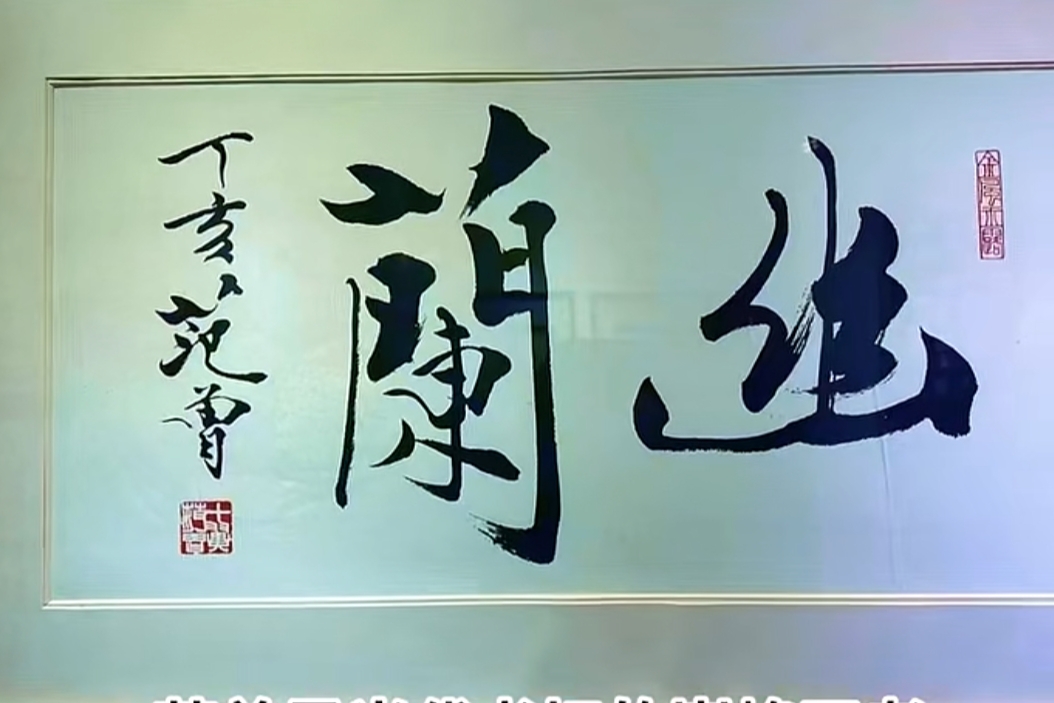 幽蘭
丁亥 范曾